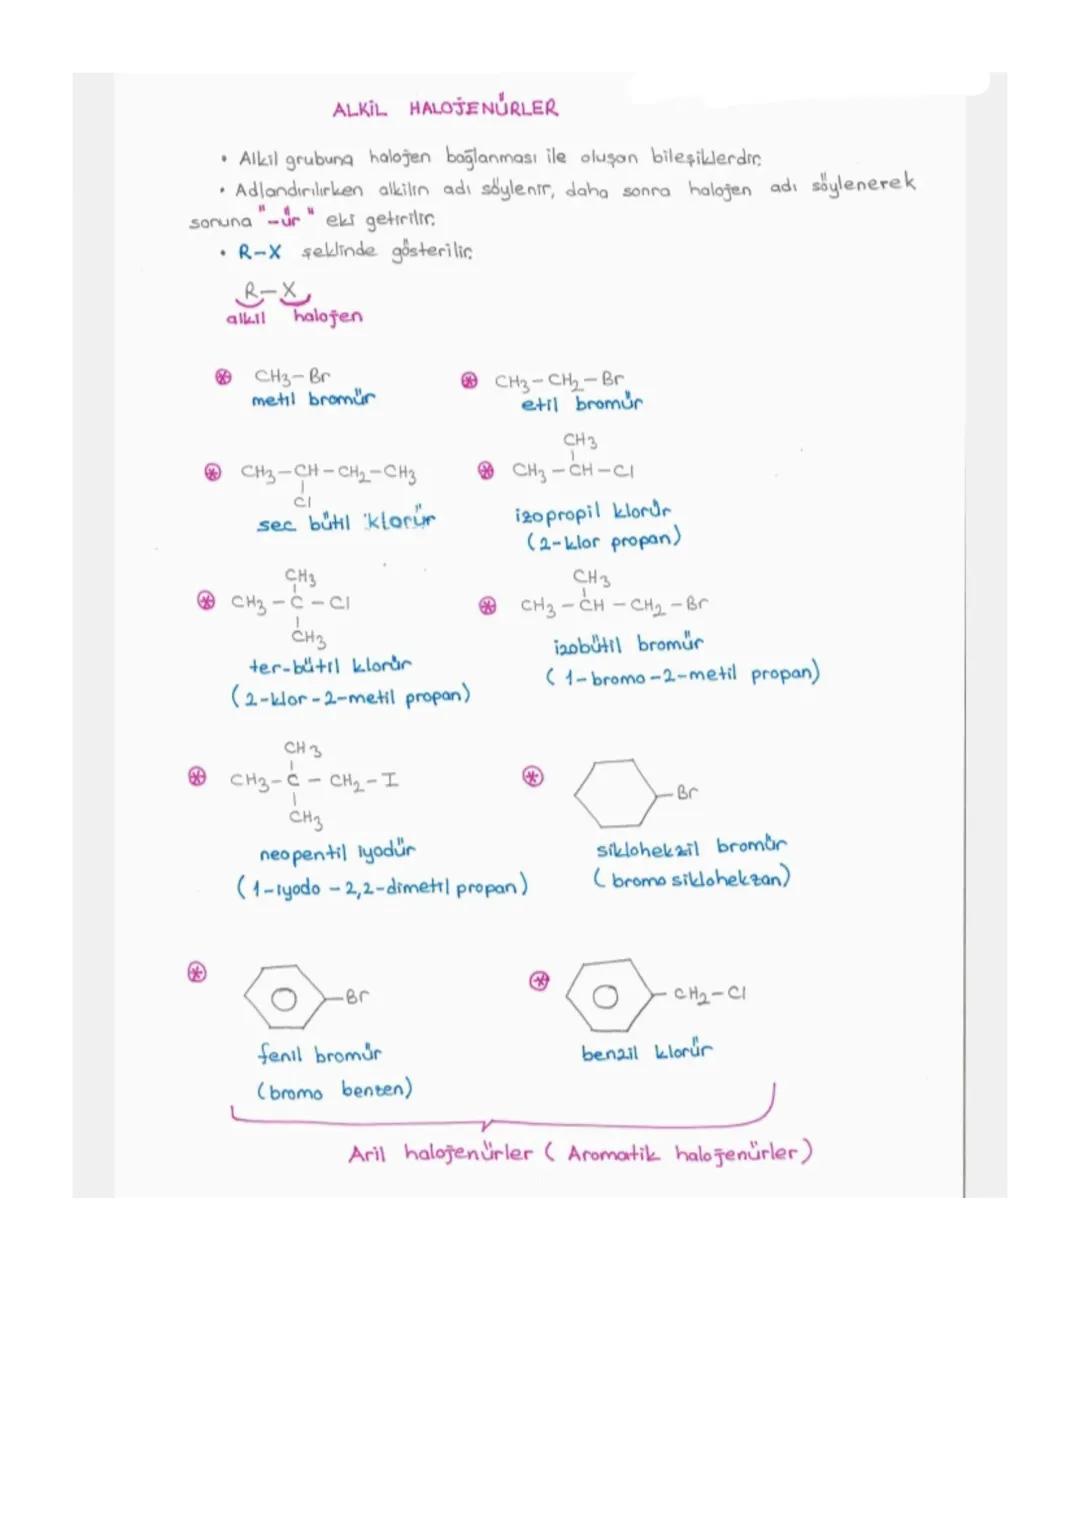 ALKİL HALOJENÜRLER
• Alkil grubuna halojen bağlanması ile oluşan bileşiklerdir.
• Adlandırılırken alkilin adı söylenir, daha sonra halojen adı söylenerek
sonuna "-ür" eki getirilir.
• R-X şeklinde gösterilir.
R-X
alkil halojen
CH3-Br
metil bromür
CH3-CH2-Br
etil bromür
CH3-CH-CH2-CH3
Cl
sec bütil klorür
CH3
CH3-CH-Cl
izopropil klorür
(2-klor propan)
CH3
CH3-C-Cl
CH3
ter-bütil klorür
(2-klor-2-metil propan)
CH3
CH3-CH-CH2-Br
izobütil bromür
(1-bromo-2-metil propan)
CH3
CH3-C-CH2-I
CH3
neopentil iyodür
(1-iyodo-2,2-dimetil propan)
Br
siklohekzil bromür
(bromo siklohekzan)
Br
fenil bromür
(bromo benzen)
CH2-Cl
benzil klorür
Aril halojenürler (Aromatik halojenürler)